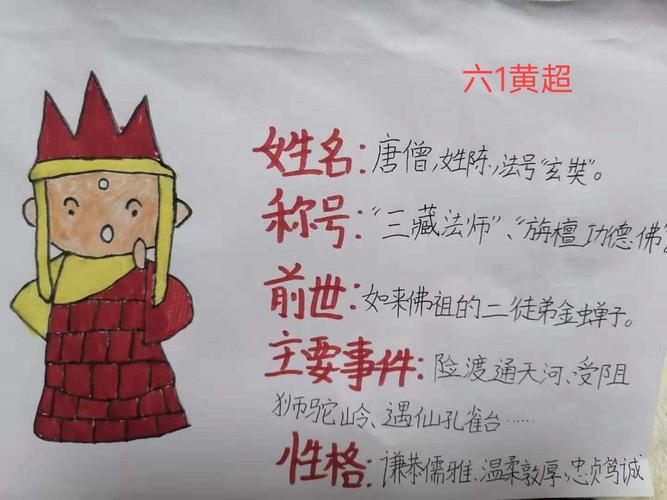 六1黄超
姓名：唐僧，姓陈，法号“玄奘”。
称号：“三藏法师”、“旃檀功德佛”。
前世：如来佛祖的二徒弟金蝉子。
主要事件：险渡通天河、受阻
狮驼岭、遇仙孔雀台……
性格：谦恭儒雅、温柔敦厚、忠贞笃诚